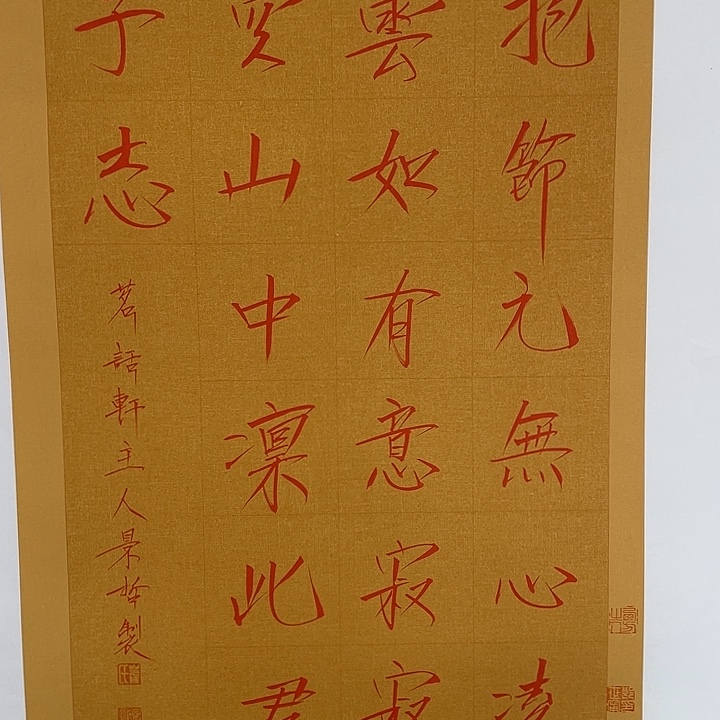 抱節元無心凌
雲如有意寂寂
空山中凜此君
子志
茗話軒主人景哲製